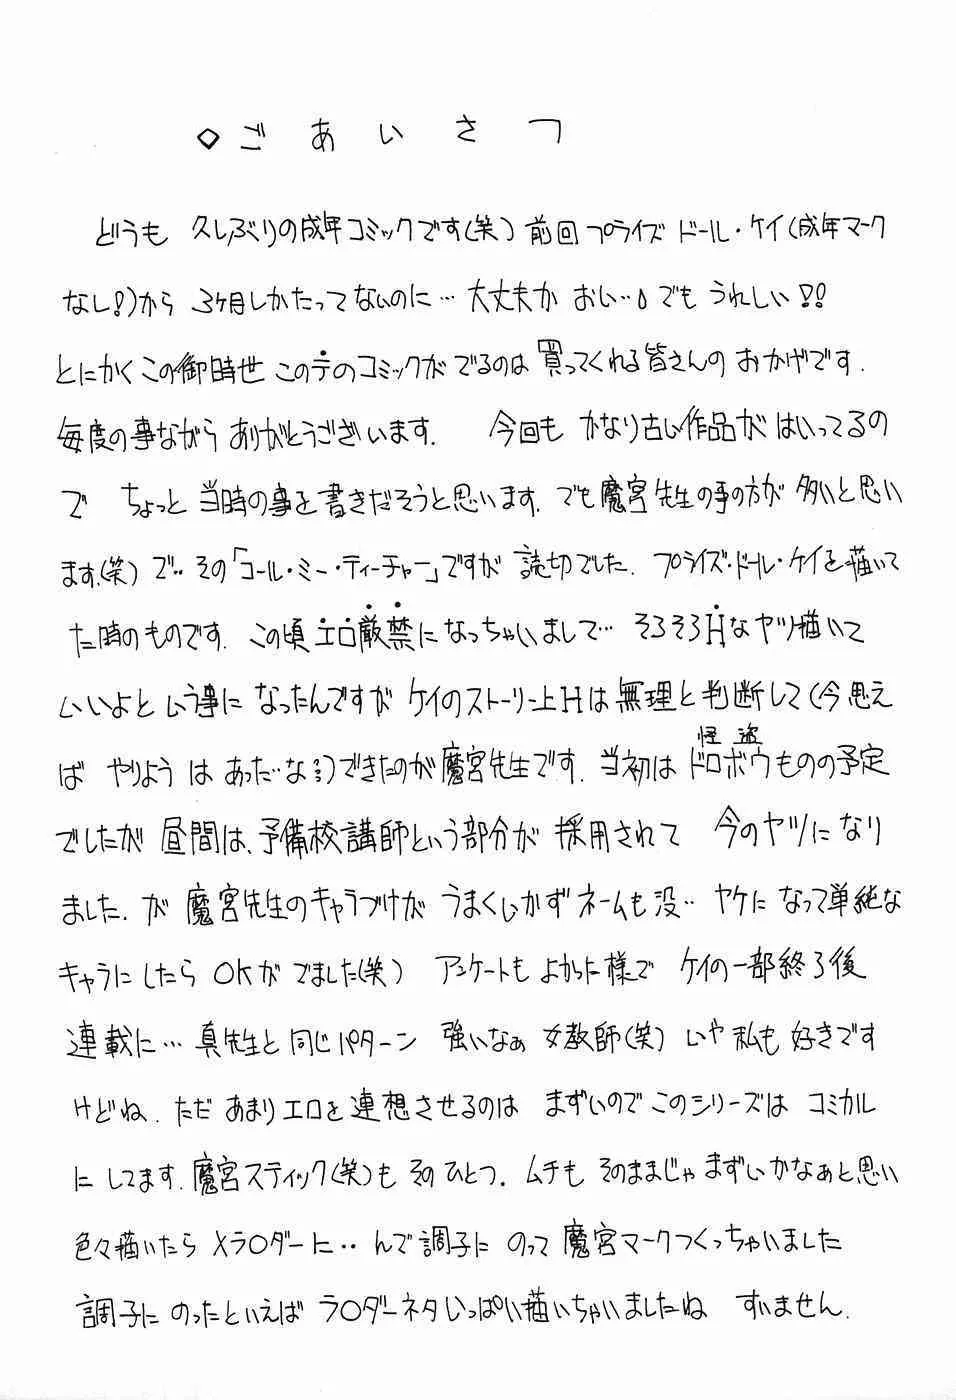 ◇ごあいさつ
どうも 久しぶりの成年コミックです(笑) 前回プライズドール・ケイ(成年マーク
なし!)から 3ヶ月しかたってないのに… 大丈夫か おい…。でも うれしい!!
とにかくこの御時世 この手のコミックがでるのは 買ってくれる皆さんの おかげです.
毎度の事ながら ありがとうございます. 今回も かなり古い作品が はいってるの
で ちょっと 当時の事を書きだそうと思います. でも 魔宮先生の事の方が 多いと思い
ます.(笑) で‥ その「コール・ミー・ティーチャー」ですが 読切でした. プライズ・ドール・ケイを描いて
た時のものです. この頃 エロ厳禁になっちゃいまして… そろそろHなヤツ描いて
いいよという事に なったんですが ケイのストーリー上Hは無理と判断して(今思え
ば やりようは あった…なぁ)できたのが魔宮先生です. 当初は ドロボウものの予定
怪盗
でしたが 昼間は、予備校講師という部分が 採用されて 今のヤツになり
ました. が 魔宮先生のキャラづけが うまくいかずネームも没‥ ヤケに なって単純な
キャラにしたら OKが でました(笑) アンケートも よかった様で ケイの一部終了後
連載に… 真先生と同じパターン 強いなぁ 女教師(笑) いや 私も 好きです
けどね. ただ あまりエロを連想させるのは まずいのでこのシリーズは コミカル
に してます. 魔宮スティック(笑)も そのひとつ. ムチも そのままじゃまずいかなぁと思い
色々描いたら メラ○ダーに‥ んで調子に のって 魔宮マークつくっちゃいました
調子に のったといえば ラ○ダーネタいっぱい描いちゃいましたね すいません.